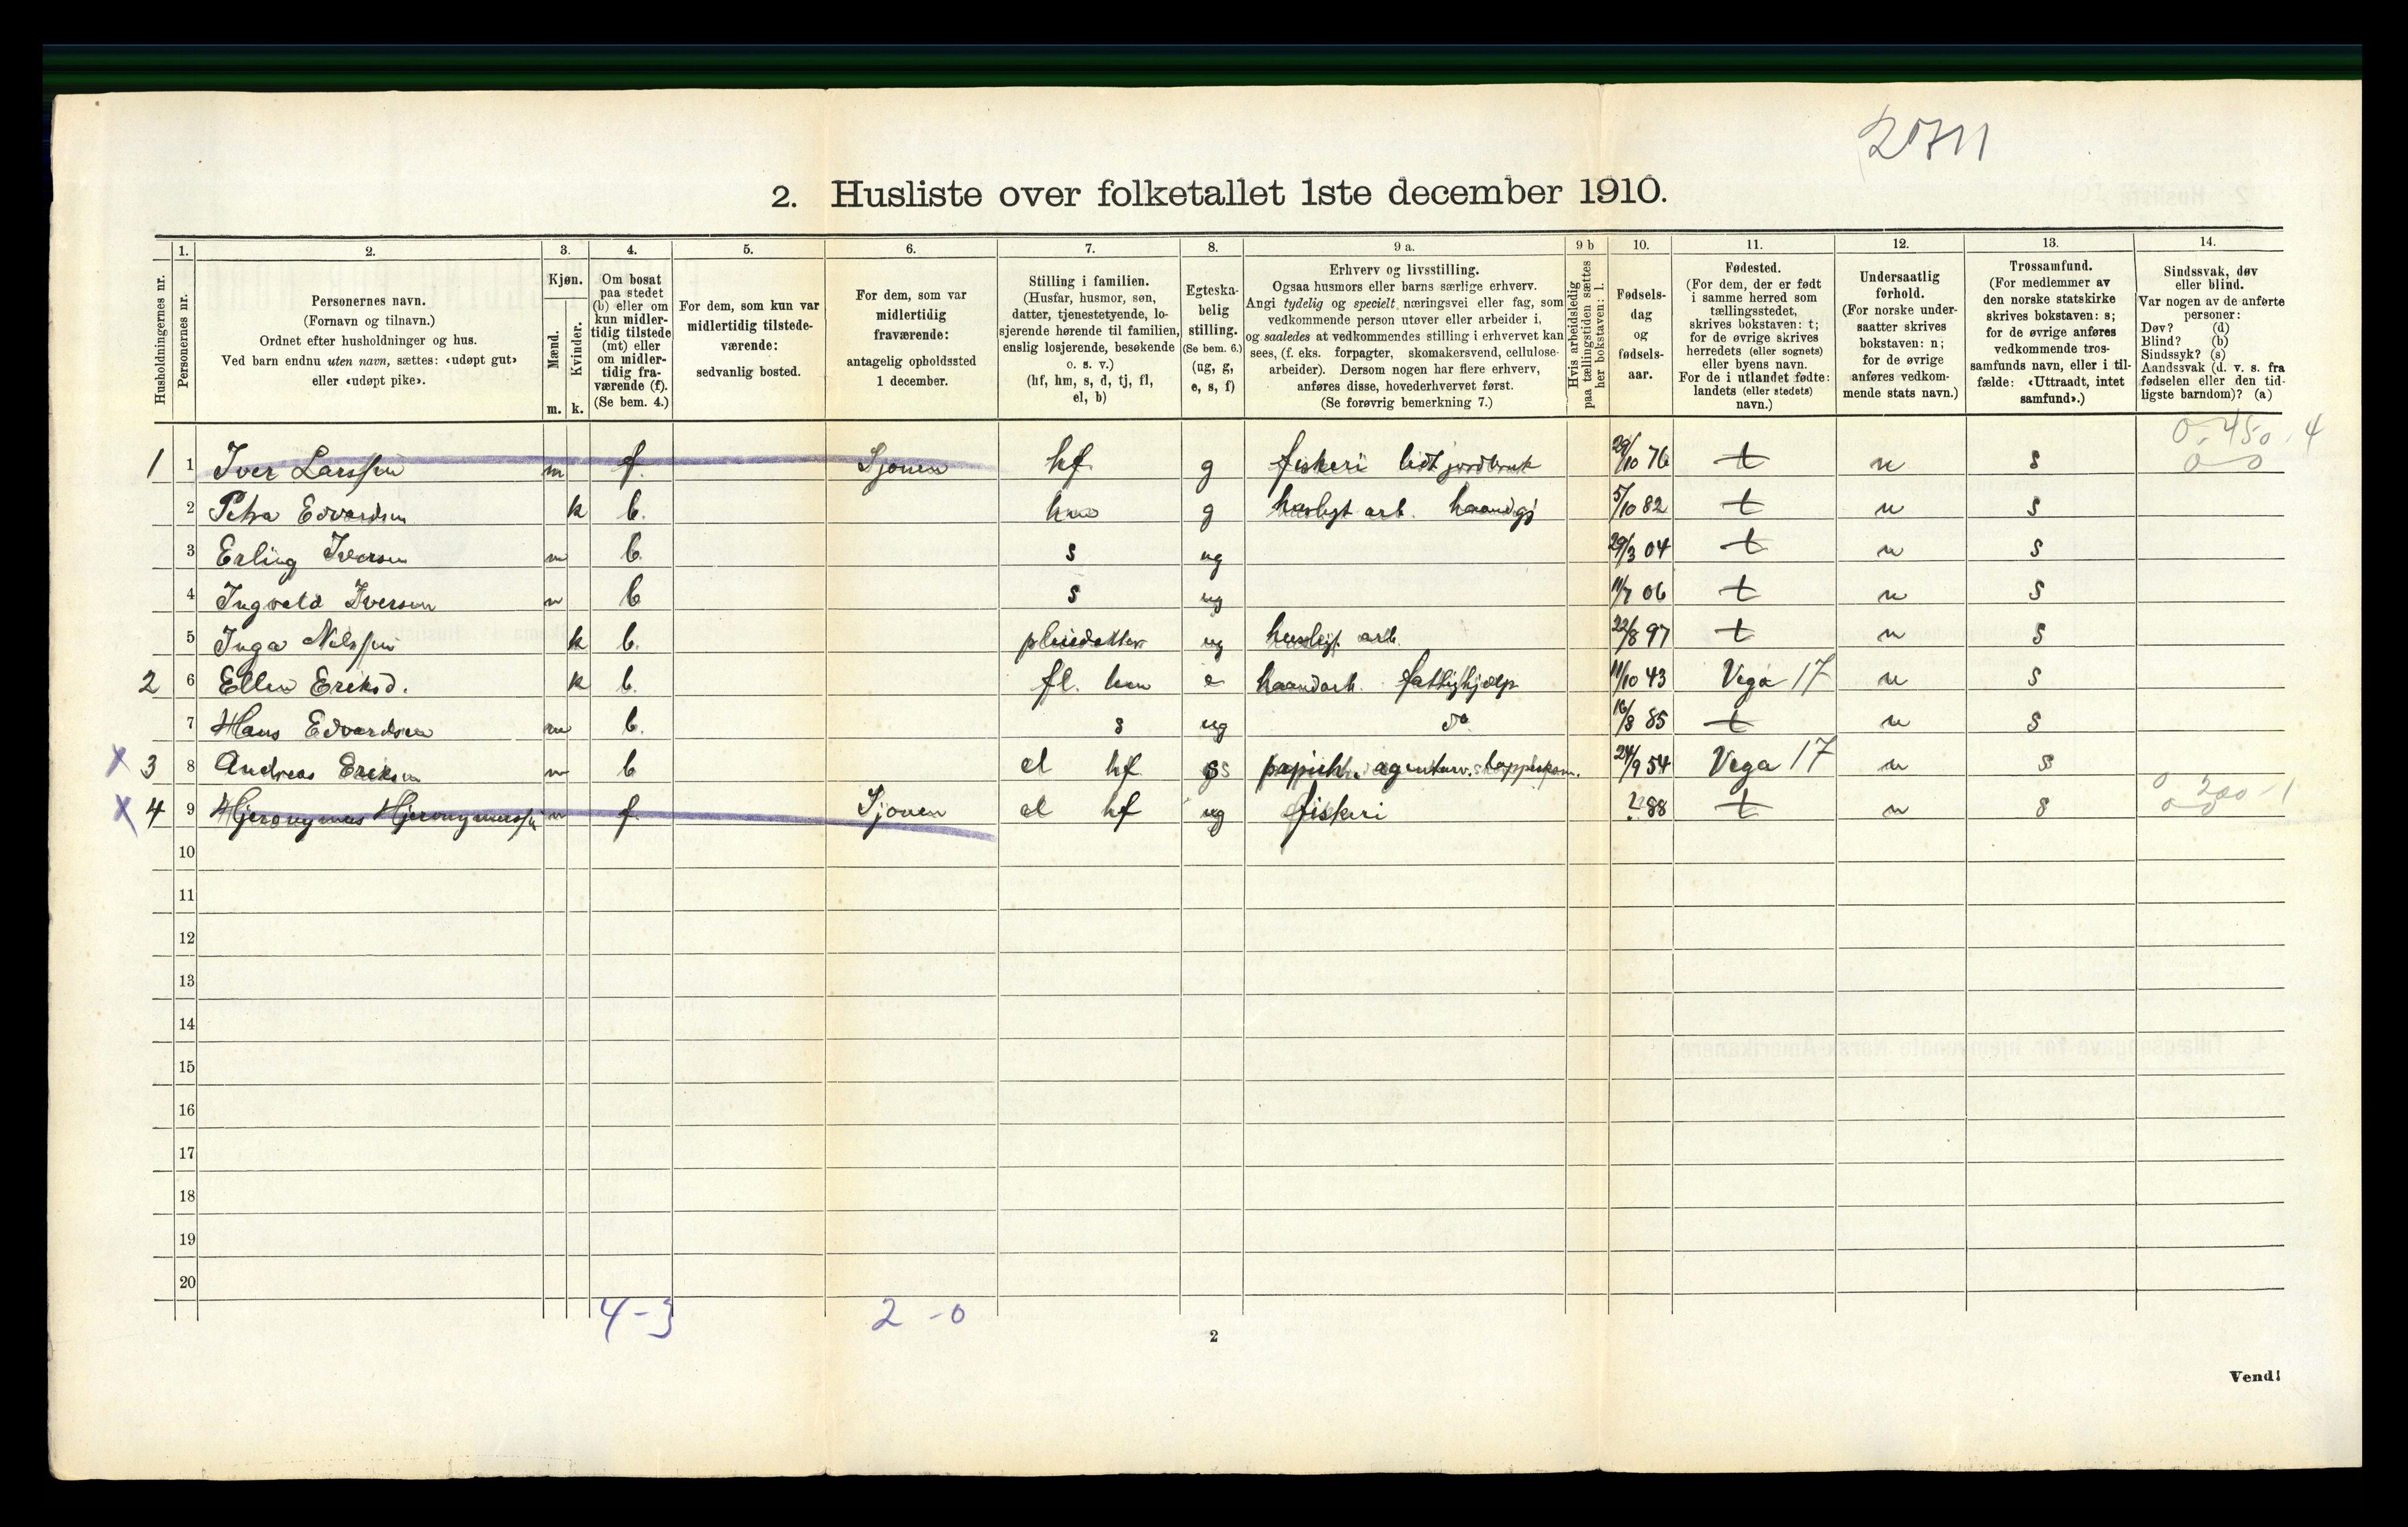 2711
2. Husliste over folketallet 1ste december 1910.
1. 2. 3. 4. 5. 6. 7. 8. 9 a. 9 b 10. 11. 12. 13. 14.
Husholdningernes nr.
Personernes nr.
Personernes navn.
(Fornavn og tilnavn.)
Ordnet efter husholdninger og hus.
Ved barn endnu uten navn, sættes: «udøpt gut»
eller «udøpt pike».
Kjøn.
Mænd.
Kvinder.
m. k.
Om bosat
paa stedet
(b) eller om
kun midler-
tidig tilstede
(mt) eller
om midler-
tidig fra-
værende (f).
(Se bem. 4.)
For dem, som kun var
midlertidig tilstede-
værende:
sedvanlig bosted.
For dem, som var
midlertidig
fraværende:
antagelig opholdssted
1 december.
Stilling i familien.
(Husfar, husmor, søn,
datter, tjenestetyende, lo-
sjerende hørende til familien,
enslig losjerende, besøkende
o. s. v.)
(hf, hm, s, d, tj, fl,
el, b)
Egteska-
belig
stilling.
(Se bem. 6.)
(ug, g,
e, s, f)
Erhverv og livsstilling.
Ogsaa husmors eller barns særlige erhverv.
Angi tydelig og specielt næringsvei eller fag, som
vedkommende person utøver eller arbeider i,
og saaledes at vedkommendes stilling i erhvervet kan
sees, (f. eks. forpagter, skomakersvend, cellulose-
arbeider). Dersom nogen har flere erhverv,
anføres disse, hovederhvervet først.
(Se forøvrig bemerkning 7.)
Hvis arbeidsledig
paa tællingstiden sættes
her bokstaven: l.
Fødsels-
dag
og
fødsels-
aar.
Fødested.
(For dem, der er født
i samme herred som
tællingsstedet,
skrives bokstaven: t;
for de øvrige skrives
herredets (eller sognets)
eller byens navn.
For de i utlandet fødte:
landets (eller stedets)
navn.)
Undersaatlig
forhold.
(For norske under-
saatter skrives
bokstaven: n;
for de øvrige
anføres vedkom-
mende stats navn.)
Trossamfund.
(For medlemmer av
den norske statskirke
skrives bokstaven: s;
for de øvrige anføres
vedkommende tros-
samfunds navn, eller i til-
fælde: «Uttraadt, intet
samfund».)
Sindssvak, døv
eller blind.
Var nogen av de anførte
personer:
Døv? (d)
Blind? (b)
Sindssyk? (s)
Aandssvak (d. v. s. fra
fødselen eller den tid-
ligste barndom)? (a)
0-450-4
1 1 Iver Larssen m f. Sjonen hf. g fiskeri lidt jordbruk 29/10 76 t n s 0-0
2 Petra Edvardsen k b. hm g husligt arb. haandgj 5/10 82 t n s
3 Erling Iversen m b. s ug 29/3 04 t n s
4 Ingvald Iversen m b s ug 11/7 06 t n s
5 Inga Nilssen k b. pleiedatter ug husligt arb. 22/8 97 t n s
2 6 Ellen Eriksd. k b. fl. hm e haandarb. fattighjælp 11/10 43 Vega 17 n s
7 Hans Edvardsen m b. s ug do 16/8 85 t n s
x 3 8 Andreas Eriksen m b el hf. s 24/9 54 Vega 17 n s
x 4 9 Hjeronymus Hjeronymussen m f. Sjonen el hf ug fiskeri ? 88 t n s 0 200-1
0-0
10
11
12
13
14
15
16
17
18
19
20
4-3 2-0
2
Vend!